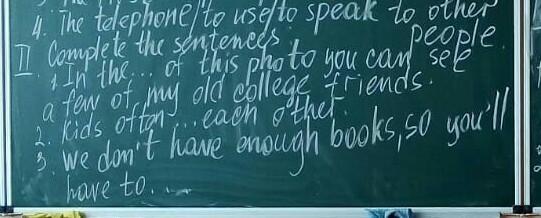 4. The telephone/to use/to speak to other people
II. Complete the sentences.
1. In the... of this photo you can see
a few of my old college friends.
2. Kids often ... each other.
3. We don't have enough books, so you'll
have to....